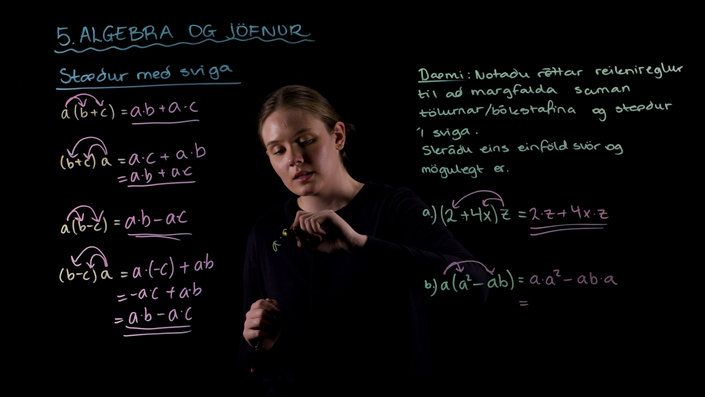 5. ALGEBRA OG JÖFNUR
Stæður með sviga
a(b+c) = a·b + a·c
(b+c)a = a·c + a·b
= a·b + a·c
a(b-c) = a·b - a·c
(b-c)a = a·(-c) + a·b
= -a·c + a·b
= a·b - a·c
Dæmi: Notaðu réttar reiknireglur
til að margfalda saman
tölurnar/bókstafina og stæður
í sviga.
Skráðu eins einföld svör og
mögulegt er.
a) (2 + 4x)z = 2·z + 4x·z
b) a(a² - ab) = a·a² - ab·a
=